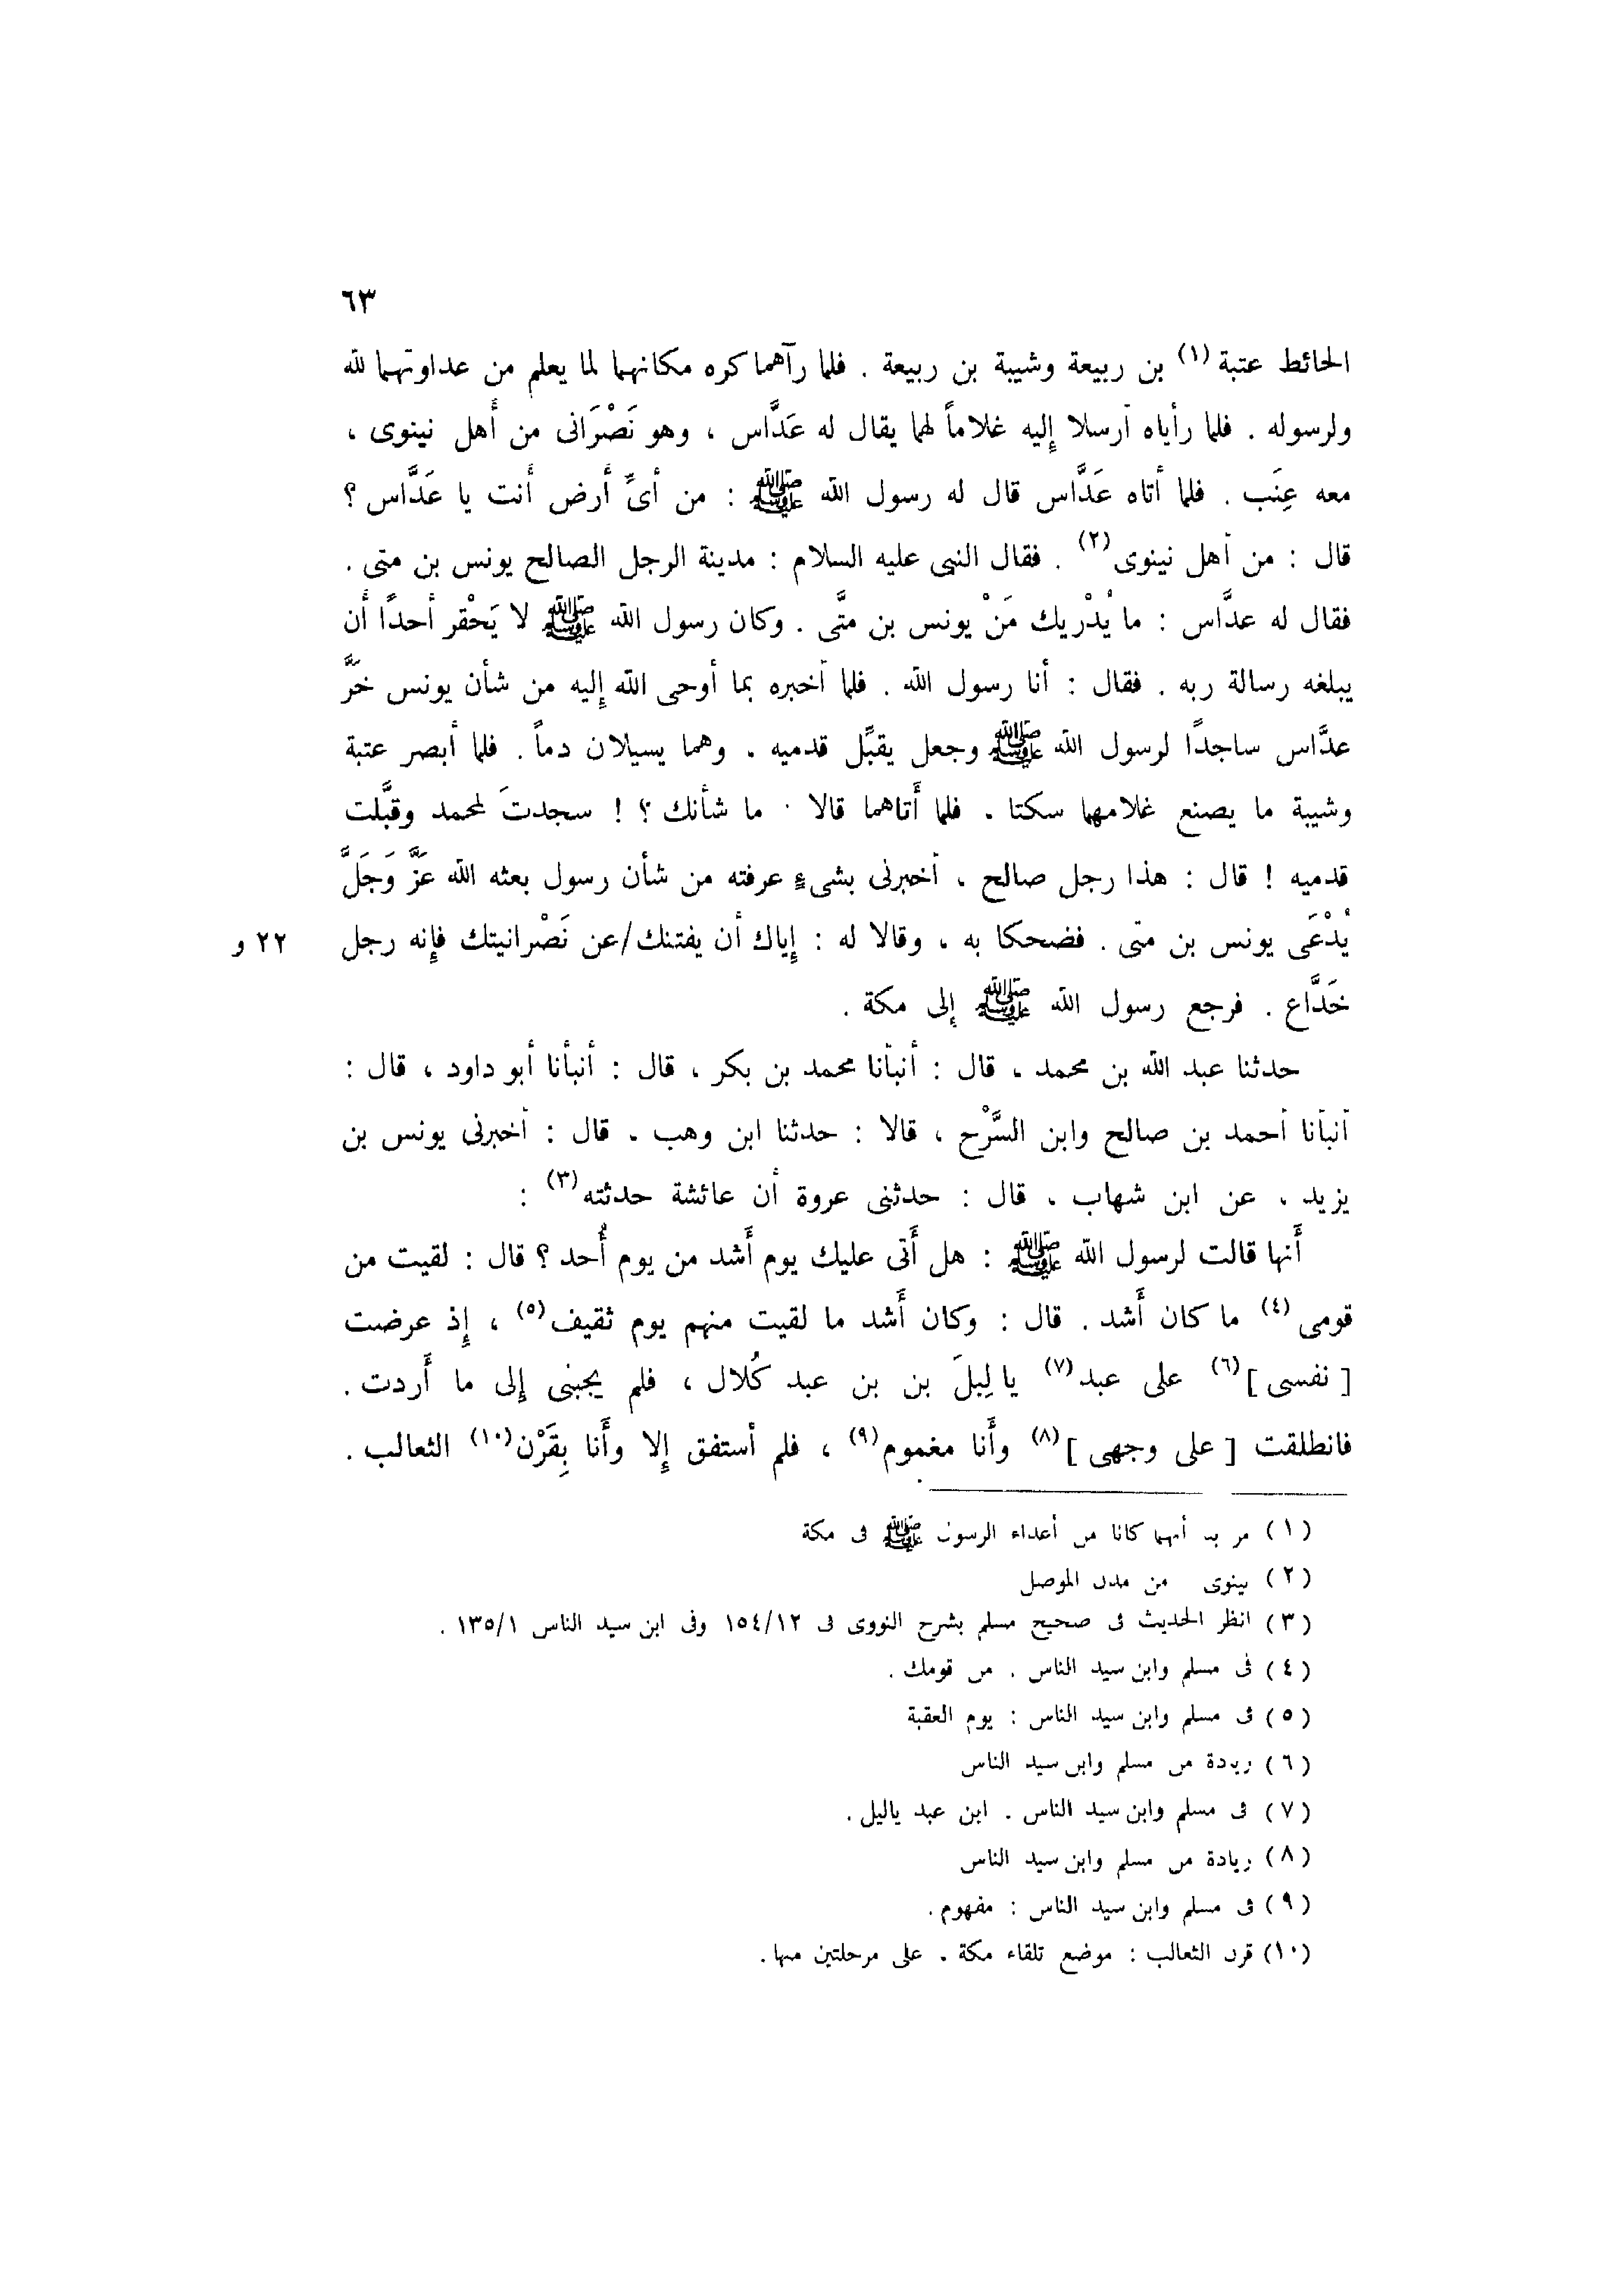 ٦٣
الحائط عتبة (١) بن ربيعة وشيبة بن ربيعة . فلما رآهما كره مكانهما لما يعلم من عداوتهما لله
ولرسوله . فلما رأياه أرسلا إليه غلاماً لهما يقال له عَدَّاس ، وهو نَصْرَانى من أهل نينوى ،
معه عِنَب . فلما أتاه عَدَّاس قال له رسول الله ﷺ : من أىِّ أرض أنت يا عَدَّاس ؟
قال : من أهل نينوى (٢) . فقال النبى عليه السلام : مدينة الرجل الصالح يونس بن متى .
فقال له عدَّاس : ما يُدْريك مَنْ يونس بن متَّى . وكان رسول الله ﷺ لا يَحْقر أحدًا أن
يبلغه رسالة ربه . فقال : أنا رسول الله . فلما أخبره بما أوحى الله إليه من شأن يونس خَرَّ
عدَّاس ساجدًا لرسول الله ﷺ وجعل يقبِّل قدميه ، وهما يسيلان دماً . فلما أبصر عتبة
وشيبة ما يصنع غلامهما سكتا . فلما أتاهما قالا : ما شأنك ؟ ! سجدتَ لمحمد وقبَّلت
قدميه ! قال : هذا رجل صالح ، أخبرنى بشىءٍ عرفته من شأن رسول بعثه الله عَزَّ وَجَلَّ
يُدْعَى يونس بن متى . فضحكا به ، وقالا له : إياك أن يفتنك/عن نَصْرانيتك فإنه رجل ٢٢ و
خَدَّاع . فرجع رسول الله ﷺ إلى مكة .
حدثنا عبد الله بن محمد ، قال : أنبأنا محمد بن بكر ، قال : أنبأنا أبو داود ، قال :
أنبأنا أحمد بن صالح وابن السَّرْح ، قالا : حدثنا ابن وهب . قال : أخبرنى يونس بن
يزيد ، عن ابن شهاب ، قال : حدثنى عروة أن عائشة حدثته (٣) :
أنها قالت لرسول الله ﷺ : هل أتى عليك يوم أشد من يوم أُحد ؟ قال : لقيت من
قومى (٤) ما كان أشد . قال : وكان أشد ما لقيت منهم يوم ثقيف (٥) ، إذ عرضت
[ نفسى ] (٦) على عبد (٧) يا لِيلَ بن بن عبد كُلال ، فلم يجبنى إلى ما أردت .
فانطلقت [ على وجهى ] (٨) وأنا مغموم (٩) ، فلم أستفق إلا وأنا بِقَرْن (١٠) الثعالب .
(١) مر بنا أنهما كانا من أعداء الرسول ﷺ فى مكة
(٢) نينوى من مدن الموصل
(٣) انظر الحديث فى صحيح مسلم بشرح النووى فى ١٥٤/١٢ وفى ابن سيد الناس ١٣٥/١ .
(٤) فى مسلم وابن سيد الناس . من قومك .
(٥) فى مسلم وابن سيد الناس : يوم العقبة
(٦) زيادة من مسلم وابن سيد الناس
(٧) فى مسلم وابن سيد الناس . ابن عبد ياليل .
(٨) زيادة من مسلم وابن سيد الناس
(٩) فى مسلم وابن سيد الناس : مفهوم .
(١٠) قرن الثعالب : موضع تلقاء مكة . على مرحلتين منها .